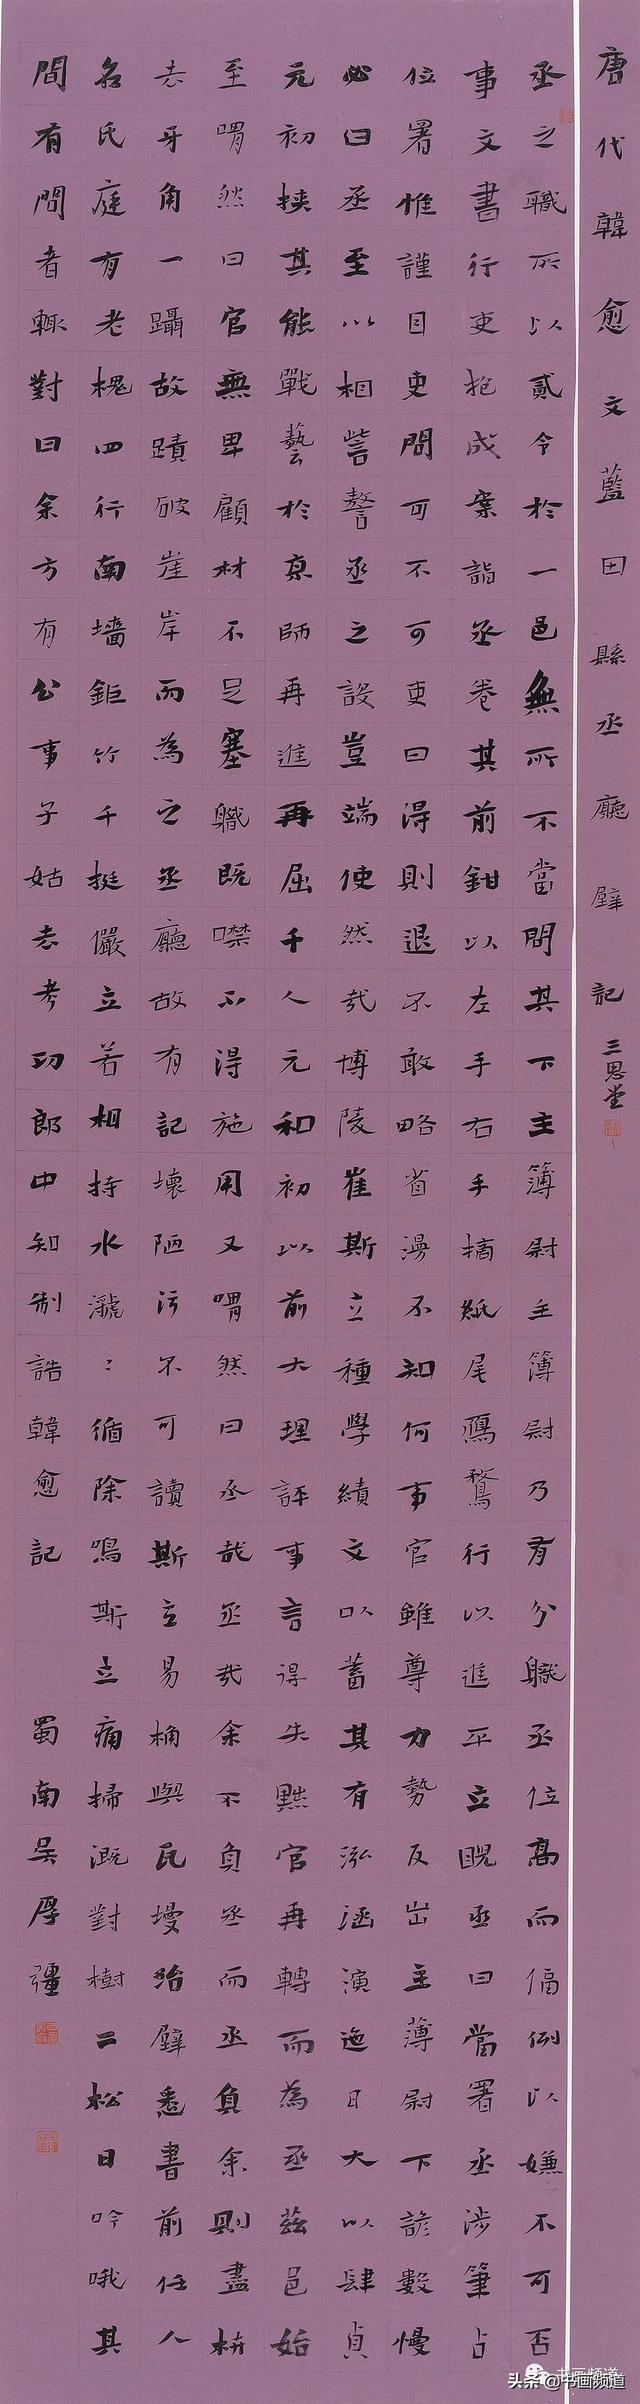 唐代韓愈文藍田縣丞廳壁記 三思堂
丞之職所以貳令於一邑無所不當問其下主簿尉主簿尉乃有分職丞位高而偪例以嫌不可否
事文書行吏抱成案詣丞卷其前鉗以左手右手摘紙尾鴈鶩行以進平立睨丞曰當署丞涉筆占
位署惟謹目吏問可不可吏曰得則退不敢略省漫不知何事官雖尊力勢反出主薄尉下諺數慢
必曰丞至以相訾謷丞之設豈端使然哉博陵崔斯立種學績文以蓄其有泓涵演迤日大以肆貞
元初挾其能戰藝於京師再進再屈千人元和初以前大理評事言得失黜官再轉而為丞茲邑始
至喟然曰官無卑顧材不足塞職既噤不得施用又喟然曰丞哉丞哉余不負丞而丞負余則盡枿
去牙角一躡故蹟破崖岸而為之丞廳故有記壞陋污不可讀斯立易桷與瓦墁治壁悉書前任人
名氏庭有老槐四行南墻鉅竹千挺儼立若相持水㶁：循除鳴斯立痛掃溉對樹二松日吟哦其
間有問者輒對曰余方有公事子姑去考功郎中知制誥韓愈記 蜀南吳厚疆
书画频道
头条@书画频道